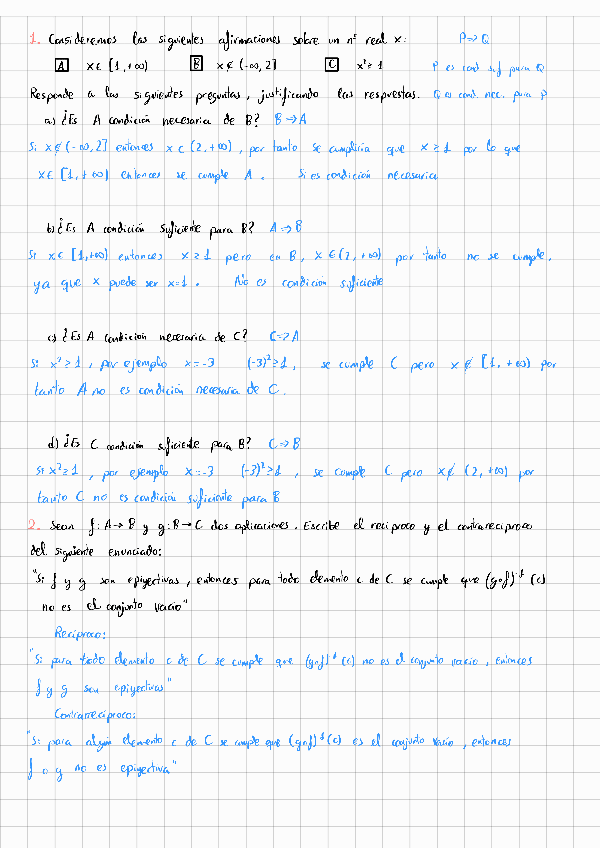 1. Consideremos las siguientes afirmaciones sobre un nº real x: P => Q
A x ∈ [1, +∞) B x ∉ (-∞, 2] C x² ≥ 1 P es cond. suf para Q
Responde a las siguientes preguntas, justificando las respuestas. Q es cond. nec. para P
a) ¿Es A condición necesaria de B? B => A
Si x ∉ (-∞, 2] entonces x ∈ (2, +∞), por tanto se cumpliría que x ≥ 1 por lo que
x ∈ [1, +∞) entonces se cumple A. Si es condición necesaria
b) ¿Es A condición suficiente para B? A => B
Si x ∈ [1, +∞) entonces x ≥ 1 pero en B, x ∈ (2, +∞) por tanto no se cumple,
ya que x puede ser x=1. No es condición suficiente
c) ¿Es A condición necesaria de C? C => A
Si x² ≥ 1, por ejemplo x = -3 (-3)² ≥ 1, se cumple C pero x ∉ [1, +∞) por
tanto A no es condición necesaria de C.
d) ¿Es C condición suficiente para B? C => B
Si x² ≥ 1, por ejemplo x = -3 (-3)² ≥ 1, se cumple C pero x ∉ (2, +∞) por
tanto C no es condición suficiente para B
2. Sean f: A → B y g: B → C dos aplicaciones. Escribe el recíproco y el contrarecíproco
del siguiente enunciado:
"Si f y g son epiyectivas, entonces para todo elemento c de C se cumple que (g∘f)⁻¹(c)
no es el conjunto vacío"
Recíproco:
"Si para todo elemento c de C se cumple que (g∘f)⁻¹(c) no es el conjunto vacío, entonces
f y g son epiyectivas"
Contrarrecíproco:
"Si para algún elemento c de C se cumple que (g∘f)⁻¹(c) es el conjunto vacío, entonces
f o g no es epiyectiva"